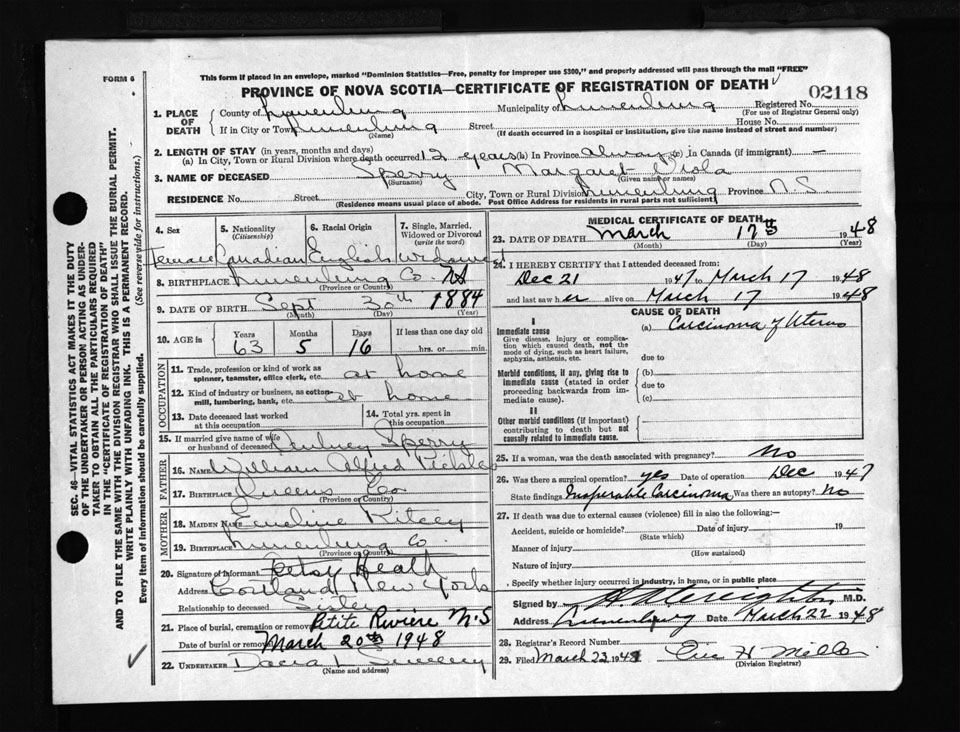 FORM 6
This form if placed in an envelope, marked "Dominion Statistics—Free, penalty for improper use $300," and properly addressed will pass through the mail "FREE"
PROVINCE OF NOVA SCOTIA—CERTIFICATE OF REGISTRATION OF DEATH
02118
1. PLACE OF DEATH
County of Lunenburg Municipality of Lunenburg Registered No.
(For use of Registrar General only)
If in City or Town Lunenburg Street House No.
(Name) (If death occurred in a hospital or institution, give the name instead of street and number)
2. LENGTH OF STAY (in years, months and days)
(a) In City, Town or Rural Division where death occurred 12 years (b) In Province always (c) In Canada (if immigrant) —
3. NAME OF DECEASED Sperry Margaret Viola
(Surname) (Given name or names)
RESIDENCE No. Street City, Town or Rural Division Lunenburg Province N.S.
(Residence means usual place of abode. Post Office Address for residents in rural parts not sufficient)
4. Sex 5. Nationality (Citizenship) 6. Racial Origin 7. Single, Married, Widowed or Divorced (write the word)
Female Canadian English widowed
8. BIRTHPLACE Lunenburg Co. NS
(Province or Country)
9. DATE OF BIRTH Sept 30th 1884
(Month) (Day) (Year)
10. AGE in Years Months Days If less than one day old
63 5 16 hrs. or min.
OCCUPATION
11. Trade, profession or kind of work as spinner, teamster, office clerk, etc. at home
12. Kind of industry or business, as cotton-mill, lumbering, bank, etc. at home
13. Date deceased last worked at this occupation
14. Total yrs. spent in this occupation
15. If married give name of wife or husband of deceased Sperry
FATHER
16. NAME William Alfred
17. BIRTHPLACE Queens Co
(Province or Country)
MOTHER
18. MAIDEN NAME Emeline Ritcey
19. BIRTHPLACE Lunenburg Co.
(Province or Country)
20. Signature of informant Heath
Address Cortland New York
Relationship to deceased Sister
21. Place of burial, cremation or removal Petite Riviere N.S
Date of burial or removal March 20th 1948
22. UNDERTAKER Sweeney
(Name and address)
MEDICAL CERTIFICATE OF DEATH
23. DATE OF DEATH March 17th 1948
(Month) (Day) (Year)
24. I HEREBY CERTIFY that I attended deceased from:
Dec 21 1947 to March 17 1948
and last saw her alive on March 17 1948
CAUSE OF DEATH
I
Immediate cause (a) Carcinoma of Uterus
Give disease, injury or complication which caused death, not the mode of dying, such as heart failure, asphyxia, asthenia, etc.
due to
Morbid conditions, if any, giving rise to immediate cause (stated in order proceeding backwards from immediate cause).
(b)
due to
(c)
II
Other morbid conditions (if important) contributing to death but not causally related to immediate cause.
25. If a woman, was the death associated with pregnancy? No
26. Was there a surgical operation? yes Date of operation Dec 1947
State findings Inoperable Carcinoma Was there an autopsy? No
27. If death was due to external causes (violence) fill in also the following:—
Accident, suicide or homicide? Date of injury 19
(State which)
Manner of injury
(How sustained)
Nature of injury
Specify whether injury occurred in industry, in home, or in public place
Signed by Creighton M.D.
Address Lunenburg Date March 22 1948
28. Registrar's Record Number
29. Filed March 23 1948
(Division Registrar)
SEC. 46—VITAL STATISTICS ACT MAKES IT THE DUTY OF THE UNDERTAKER OR PERSON ACTING AS UNDERTAKER TO OBTAIN ALL THE PARTICULARS REQUIRED IN THE "CERTIFICATE OF REGISTRATION OF DEATH" AND TO FILE THE SAME WITH THE DIVISION REGISTRAR WHO SHALL ISSUE THE BURIAL PERMIT.
WRITE PLAINLY WITH UNFADING INK. THIS IS A PERMANENT RECORD.
Every item of Information should be carefully supplied. (See reverse side for instructions.)